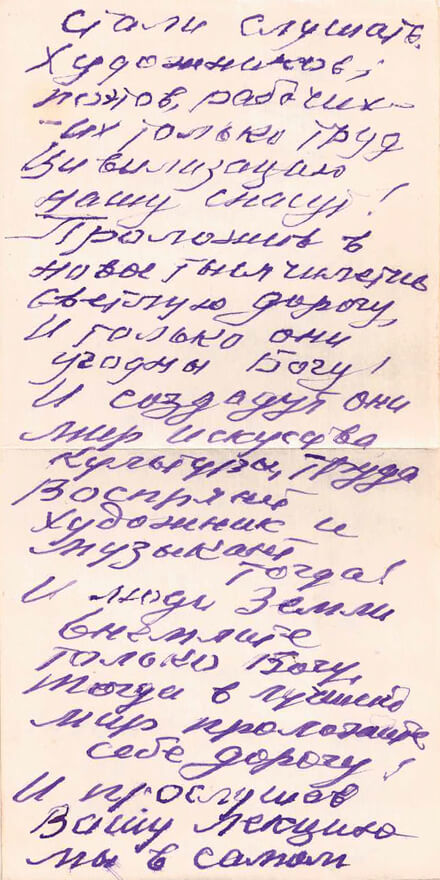 Стали слушать
Художников,
поэтов, рабочих -
- их только труд
Цивилизацию
нашу спасут!
Проложив в
новое тысячилетие
светлую дорогу,
И только они
угодны Богу!
И создадут они
мир искусства
культуры, труда
Воспрянет
художник и
музыкант
тогда!
И люди Земли
внемлите
только Богу,
тогда в лучший
мир проложите
себе дорогу!
И прослушав
Вашу лекцию
мы в самом